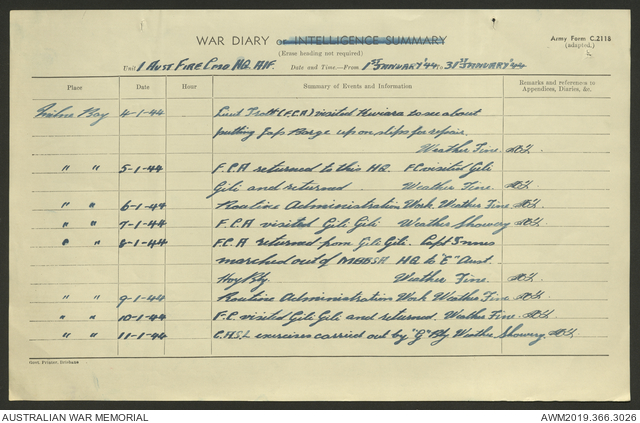 WAR DIARY or INTELLIGENCE SUMMARY
Army Form C.2118
(Erase heading not required)
(adapted.)
Unit 1 Aust. Fire Comd HQ. AIF. Date and Time—From 1st January '44 to 31st January '44
Place Date Hour Summary of Events and Information Remarks and references to Appendices, Diaries, &c.
Milne Bay 4-1-44 Lieut Trott (F.C.A) visited to see about
putting Jap Barge up on slips for repair.
Weather Fine.
" " 5-1-44 F.C.A returned to this HQ. FC visited Gili
Gili and returned Weather Fine.
" " 6-1-44 Routine Administration Work. Weather Fine.
" " 7-1-44 F.C.A visited Gili Gili Weather Showery
" " 8-1-44 F.C.A returned from Gili Gili. Capt Innes
marched out of HQ to "E" Aust.
Hvy Bty. Weather Fine.
" " 9-1-44 Routine Administration Work Weather Fine.
" " 10-1-44 F.C. visited Gili Gili and returned. Weather Fine.
" " 11-1-44 exercises carried out by "G" Bty Weather Showery.
Govt. Printer, Brisbane
AUSTRALIAN WAR MEMORIAL
AWM2019.366.3026